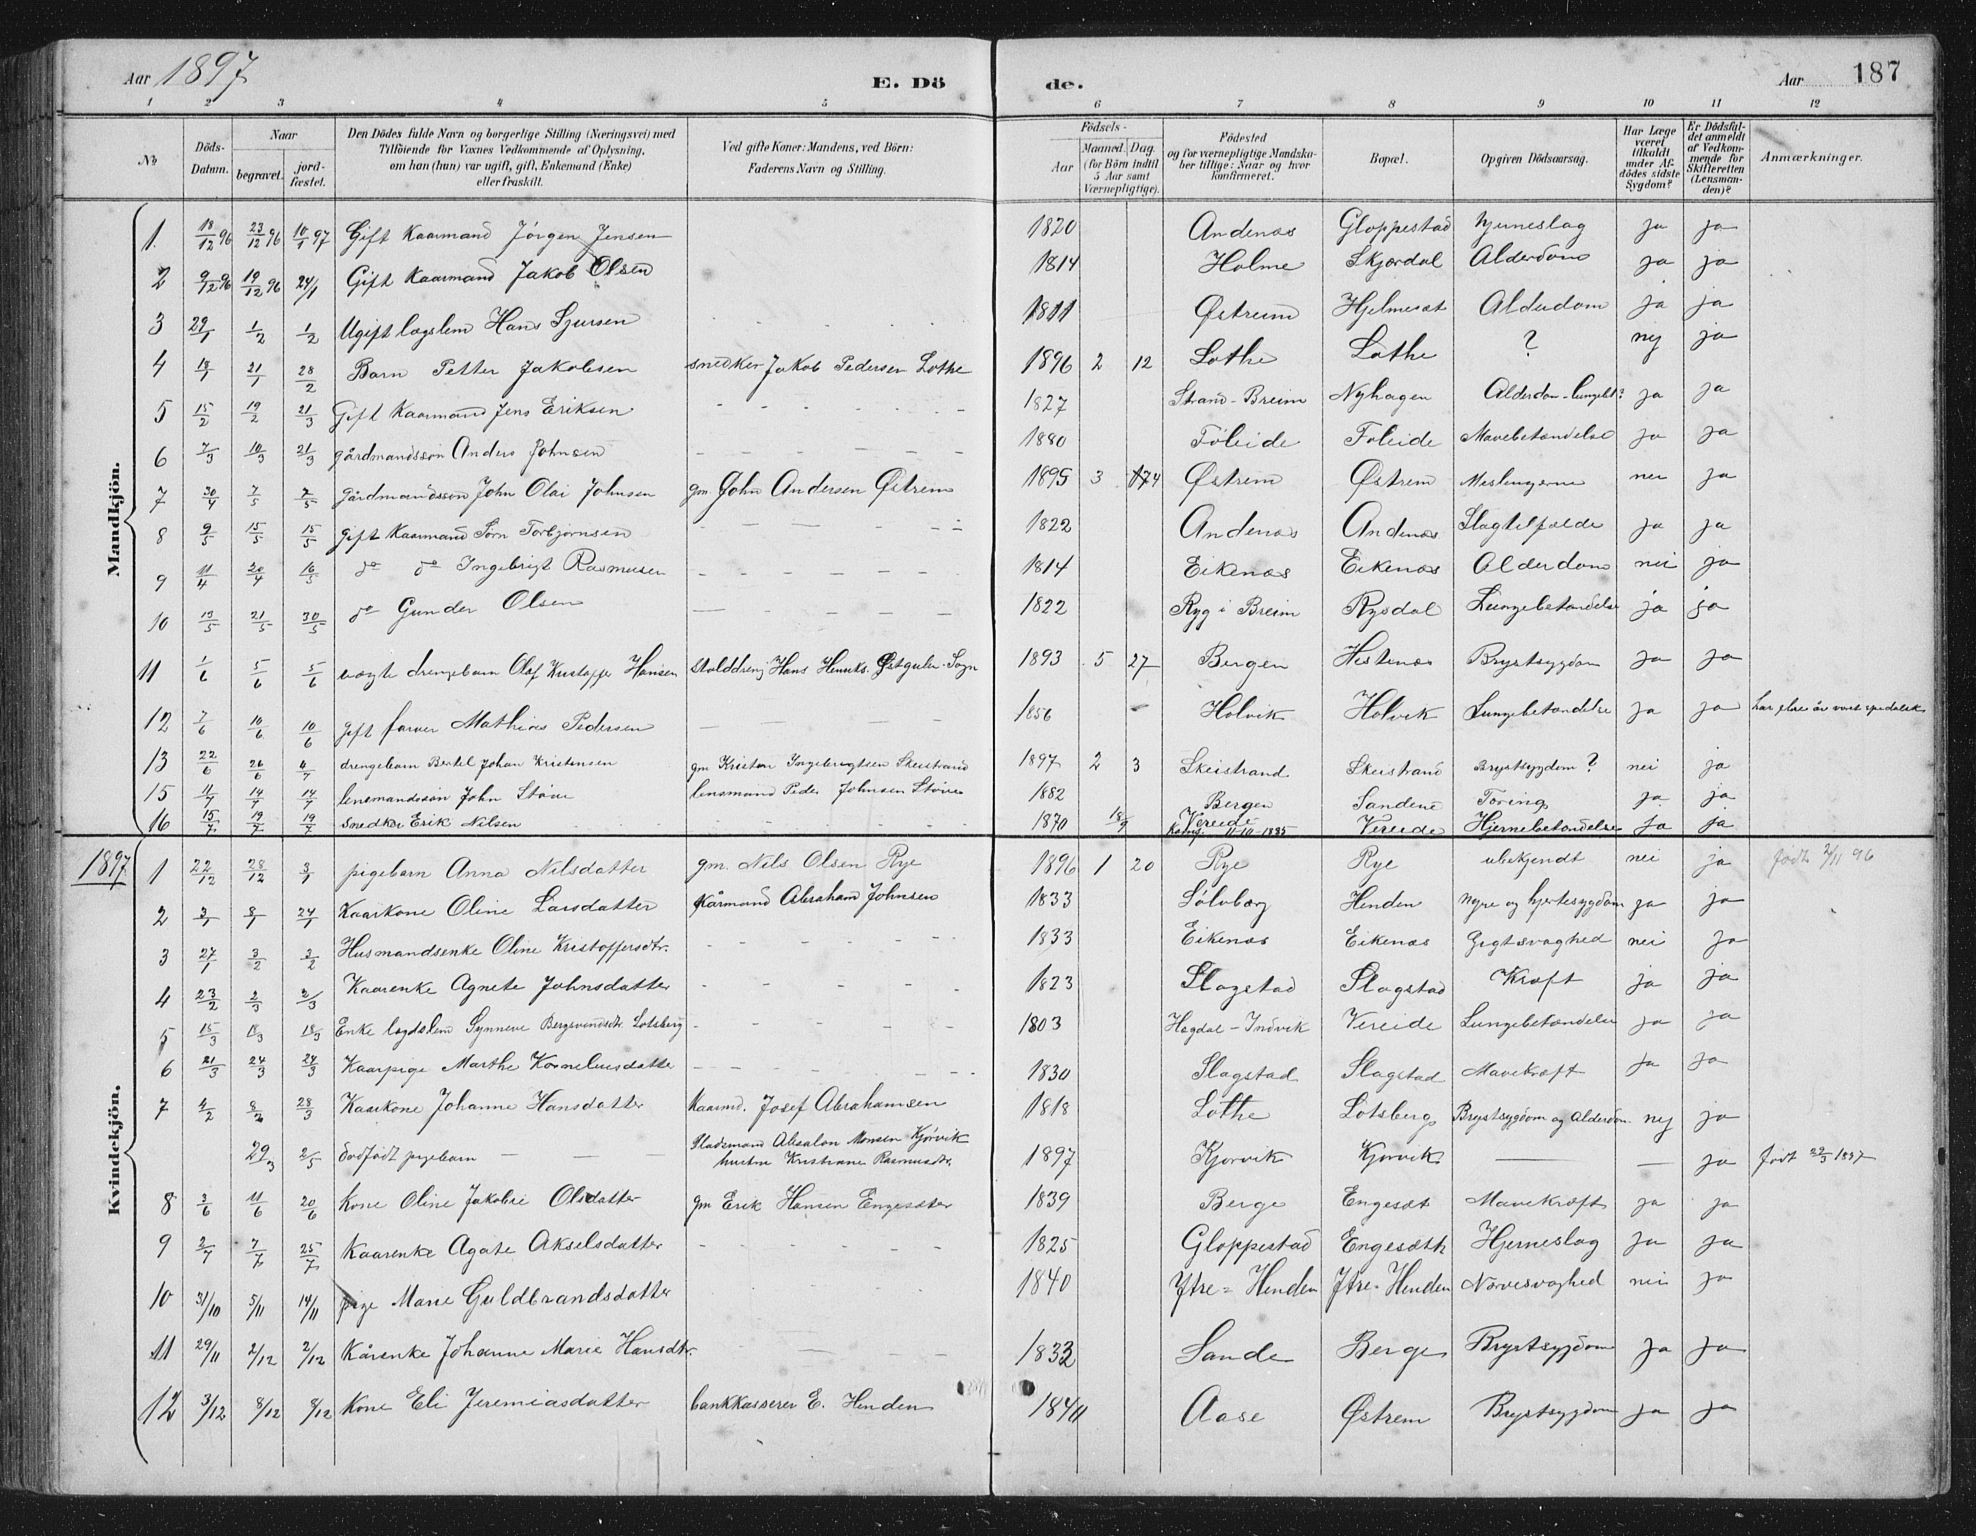 Aar 1897 E. Dö de. Aar 187
1 2 3 4 5 6 7 8 9 10 11 12
No Döds-Datum. Naar begravet. jord-fæstet. Den Dödes fulde Navn og borgerlige Stilling (Næringsvei) med Tilföiende for Voxnes Vedkommende af Oplysning, om han (hun) var ugift, gift, Enkemand (Enke) eller fraskilt. Ved gifte Koner: Mandens, ved Börn: Faderens Navn og Stilling. Födsels- Aar Maaned. Dag. (for Börn indtil 5 Aar samt Værnepligtige). Födested og for værnepligtige Mandskaber tillige: Naar og hvor konfirmeret. Bopæl. Opgiven Dödsaarsag. Har Læge været tilkaldt under Afdödes sidste Sygdom? Er Dödsfaldet anmeldt af Vedkommende for Skifteretten (Lensmanden)? Anmærkninger.
Mandkjön.
1. 18/12 96 23/12 96 10/1 97 Gift Kaarmand Jörgen Jensen 1820 Andenæs Gloppestad hjerneslag ja ja
2 9/12 96 19/12 96 24/1 Gift Kaarmand Jakob Olsen 1814 Holme Skjærdal Alderdom ja ja
3 29/1 1/2 1/2 Ugift lægslem Hans Sjursen 1811 Østreim Hjelmesæt Alderdom ja ja
4 18/1 21/1 28/2 Barn Petter Jakobsen snedker Jakob Pedersen Lothe 1896 2 12 Lothe Lothe ? nej ja
5 15/2 19/2 21/3 Gift Kaarmand Jens Eriksen 1827 Strand-Breim Nyhagen Alderdom - lungebt? ja ja
6 7/3 10/3 21/3 gårdmandssön Anders Johnsen 1880 Föleide Foleide Mavebetændelse ja ja
7 30/4 7/5 7/5 gårdmandssön John Olai Johnsen gm John Andersen Østrem 1895 3 Østrem Østrem Meslingerne nei ja
8 9/5 15/5 15/5 gift Kaarmand Sörn Torbjörnsen 1822 Andenæs Andenæs Slagtilfælde ja ja
9 11/4 20/4 16/5 do do Ingebrigt Rasmusen 1814 Eikenæs Eikenæs Alderdom nei ja
10 13/5 21/5 30/5 do Gunder Olsen 1822 Ryg i Breim Rygdal Lungebetændelse ja ja
11 1/6 5/6 5/6 uægte drengebarn Olaf Kristoffer Hansen stalddreng Hans Henriks. Østgulen-Sogn 1893 5 27 Bergen Hestenæs Brystsygdom ja ja
12 7/6 10/6 10/6 gift farver Mathias Pedersen 1856 Holvik Holvik Lungebetændelse ja ja har flere år vært spedalsk
13 22/6 26/6 4/7 drengebarn Bertel Johan Kristensen gm Kristen Ingebrigtsen Skeistrand 1897 2 3 Skeistrand Skeistrand Brystsygdom? nei ja
15 11/7 14/7 14/7 lensmandssön John Störe lensmand Peder Johnsen Störe 1882 Bergen Sandene Tæring ja ja
16 15/7 19/7 19/7 snedker Erik Nilsen 1870 18/9 Vereide Konf. 11-10-1885 Vereide Hjernebetændelse ja ja
1897
Kvindekjön.
1 22/12 28/12 3/1 pigebarn Anna Nilsdatter gm. Nils Olsen Rye 1896 1 20 Rye Rye ubekjendt nei ja født 2/11 96
2 3/1 8/1 24/1 Kaarkone Oline Larsdatter Kårmand Abraham Johnsen 1833 Sölvberg Henden nyre og hjertesygdom ja ja
3 27/1 3/2 3/2 Husmandsenke Oline Kristoffersdtr. 1833 Eikenæs Eikenæs Gigtsvaghed nei ja
4 23/2 2/3 2/3 Kaarenke Agnete Johnsdatter 1823 Slagstad Slagstad Kræft ja ja
5 15/3 18/3 18/3 Enke lægdslem Synneve Bergsvendsdtr Lotsberg 1803 Hægdal-Indvik Vereide Lungebetændelse ja ja
6 21/3 24/3 24/3 Kaarpige Marthe Korneliusdatter 1830 Slagstad Slagstad Mavekræft ja ja
7 4/2 8/2 28/3 Kaarkone Johanne Hansdatter Kaarmd. Josef Abrahamsen 1818 Lothe Lotsberg Brystsygdom og Alderdom nej ja
29/3 2/5 dodfödt pigebarn Pladsmand Absalon Monsen Kjørvik hustru Kristiane Rasmusdtr. 1897 Kjorvik Kjorvik ja født 29/3 1897
8 3/6 11/6 20/6 kone Oline Jakobie Olsdatter gm Erik Hansen Engesæter 1839 Berge Engesæt Mavekræft ja ja
9 2/7 7/7 25/7 Kaarenke Agate Akselsdatter 1825 Gloppestad Engesæth Hjerneslag ja ja
10 31/10 5/11 14/11 pige Marie Guldbrandsdatter 1840 Ytre-Henden Ytre-Henden Nervesvaghed nei ja
11 29/11 2/12 2/12 Kårenke Johanne Marie Hansdtr. 1833 Sande Berge Brystsygdom ja ja
12 3/12 8/12 8/12 Kone Eli Jeremiasdatter bankkasserer E. Henden 1840 Aase Østrem Brystsygdom ja ja